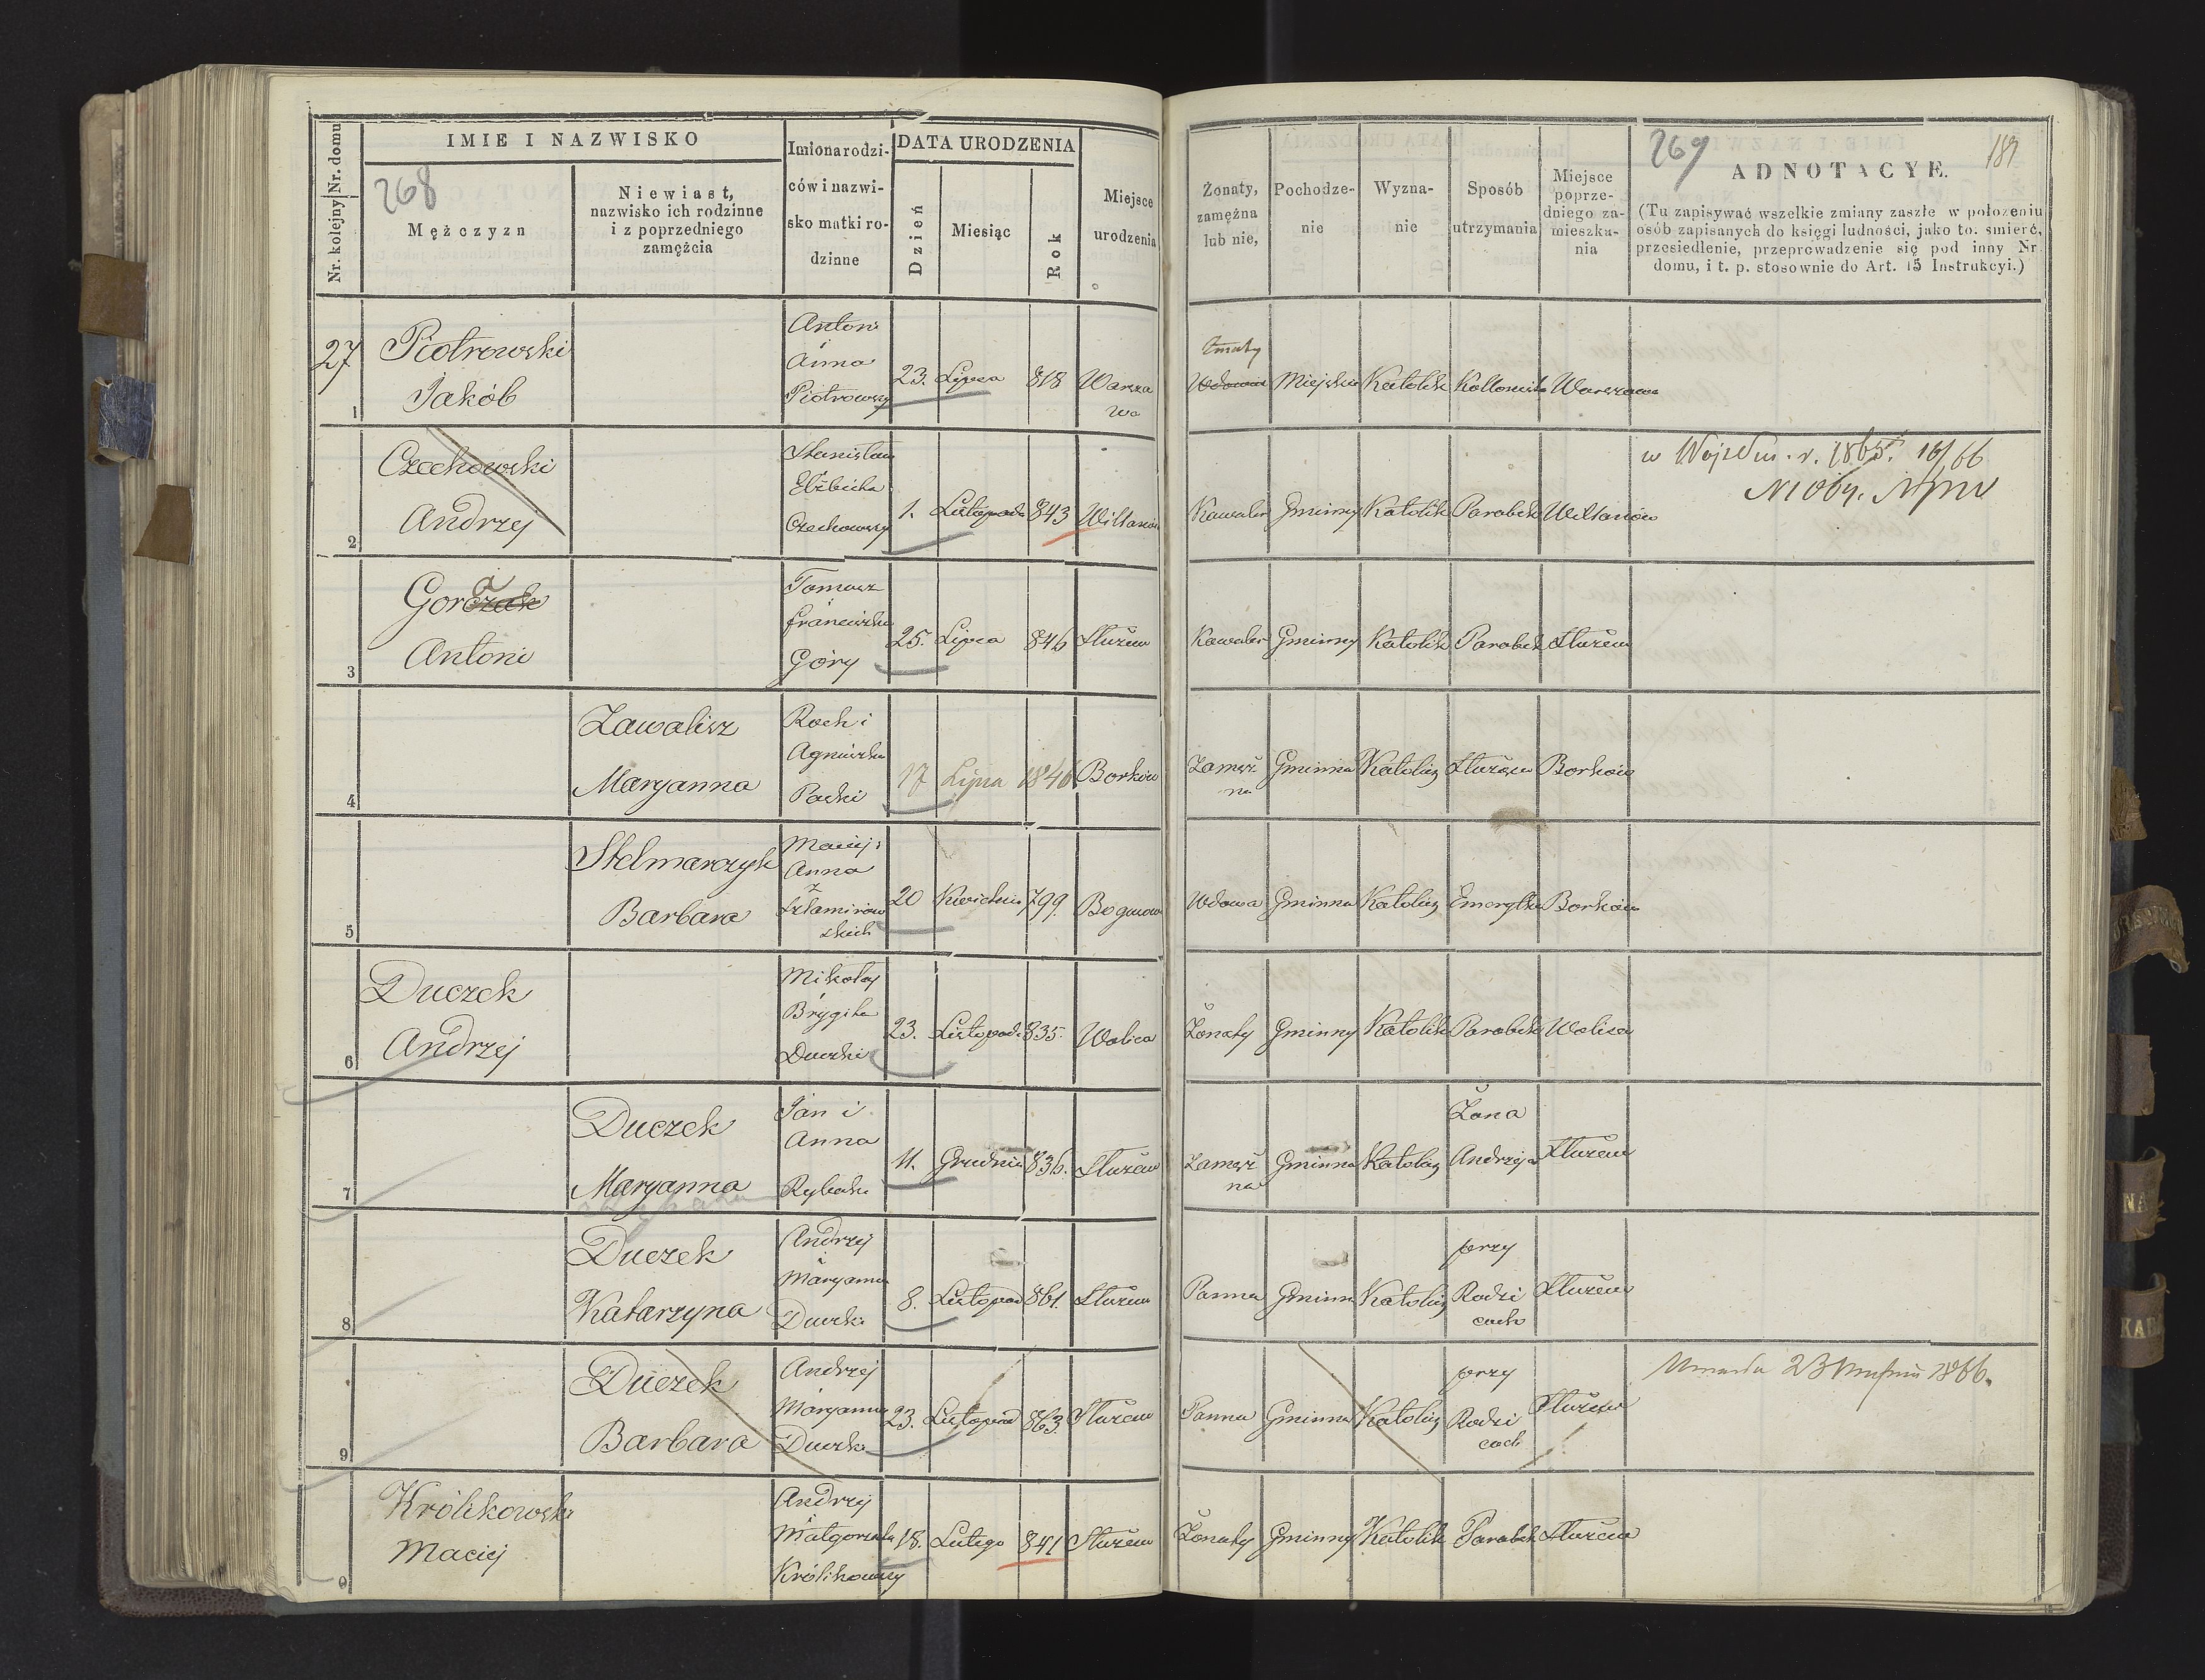 Nr. kolejny Nr. domu
IMIE I NAZWISKO
268
Mężczyzn
Niewiast,
nazwisko ich rodzinne
i z poprzedniego
zamęźcia
Imionarodzi-
ców i nazwi-
sko matki ro-
dzinne
DATA URODZENIA
Dzień
Miesiąc
Rok
Miejsce
urodzenia
Żonaty,
zamęźna
lub nie,
Pochodze-
nie
Wyzna-
nie
Sposób
utrzymania
Miejsce
poprze-
dniego za-
mieszka-
nia
269
ADNOTACYE.
(Tu zapisywać wszelkie zmiany zaszłe w położeniu
osób zapisanych do księgi ludności, jako to. śmierć,
przesiedlenie, przeprowadzenie się pod inny Nr
domu, i t. p. stosownie do Art. 15 Instrukcyi.)
27
1
Piotrowski
Jakób
Antoni
i
Anna
Piotrowscy
23. Lipca 818 Warsza
wa
Wdowiec Miejskie Katolik Kolonista Warszawa
2
Czechowski
Andrzej
Stanisław
Elżbieta
Czechowscy
1. Listopada 843 Wilanów
Kawaler Gminny Katolik Parobek Wilanów
w Wojsku r. 1865.
3
Gorczak
Antoni
Tomasz
i
Franciszka
Góry
25. Lipca 846 Służew
Kawaler Gminny Katolik Parobek Służew
4
Zawalisz
Maryanna
Roch i
Agnieszka
Packi
17 Lipca 1840 Borków
Zamęż
na
Gminna Katolicz Służąca Borków
5
Stelmarczyk
Barbara
Maciej i
Anna
skich
20 Kwietnia 799.
Wdowa Gminna Katolicz Emerytka Borków
6
Duczek
Andrzej
Mikołaj
i
Brygita
Duczki
23. Listopad. 835. Wolica
Żonaty Gminny Katolik Parobek Wolica
7
Duczek
Maryanna
Jan i
Anna
Rybak
11. Grudnia 836. Służew
Zamęż
na
Gminna Katolicz
Żona
Andrzeja
Służew
8
Duczek
Katarzyna
Andrzej
i
Maryanna
Duczki
8. Listopad 861. Służew
Panna Gminna Katolicz
przy
Rodzi
cach
Służew
9
Duczek
Barbara
Andrzej
i
Maryanna
Duczki
23. Listopad 863. Służew
Panna Gminna Katolicz
przy
Rodzi
cach
Służew
Umarła 23 1866.
0
Królikowski
Maciej
Andrzej
i
Małgorzata
Królikowscy
18. Lutego 841 Służew
Żonaty Gminny Katolik Parobek Służew